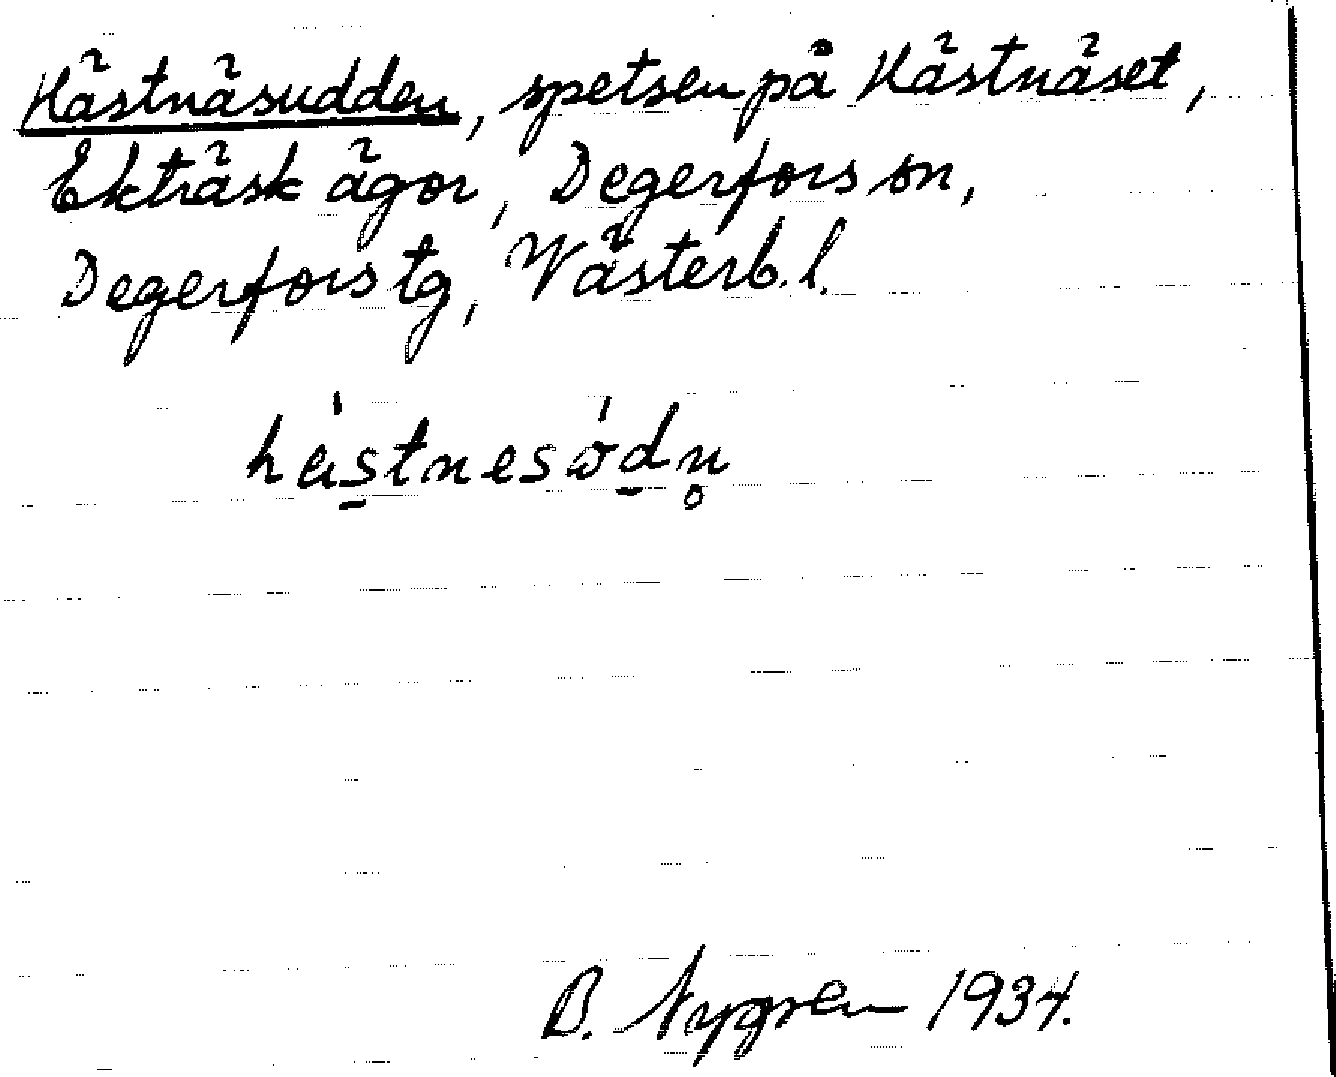 Hästnäsudden, spetsen på Hästnäset,
Ekträsk ägor, Degerfors sn,
Degerfors tg, Västerb. l.
hästnesödn̥
B. Nygren 1934.